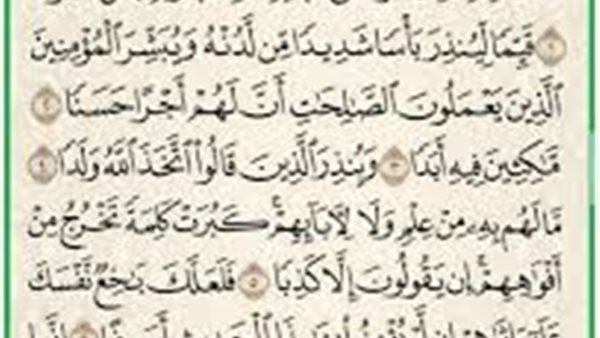 ١ قَيِّمًا لِّيُنذِرَ بَأْسًا شَدِيدًا مِّن لَّدُنْهُ وَيُبَشِّرَ الْمُؤْمِنِينَ
الَّذِينَ يَعْمَلُونَ الصَّالِحَاتِ أَنَّ لَهُمْ أَجْرًا حَسَنًا ٢
مَّاكِثِينَ فِيهِ أَبَدًا ٣ وَيُنذِرَ الَّذِينَ قَالُوا اتَّخَذَ اللَّهُ وَلَدًا ٤
مَّا لَهُم بِهِ مِنْ عِلْمٍ وَلَا لِآبَائِهِمْ ۚ كَبُرَتْ كَلِمَةً تَخْرُجُ مِنْ
أَفْوَاهِهِمْ ۚ إِن يَقُولُونَ إِلَّا كَذِبًا ٥ فَلَعَلَّكَ بَاخِعٌ نَّفْسَكَ